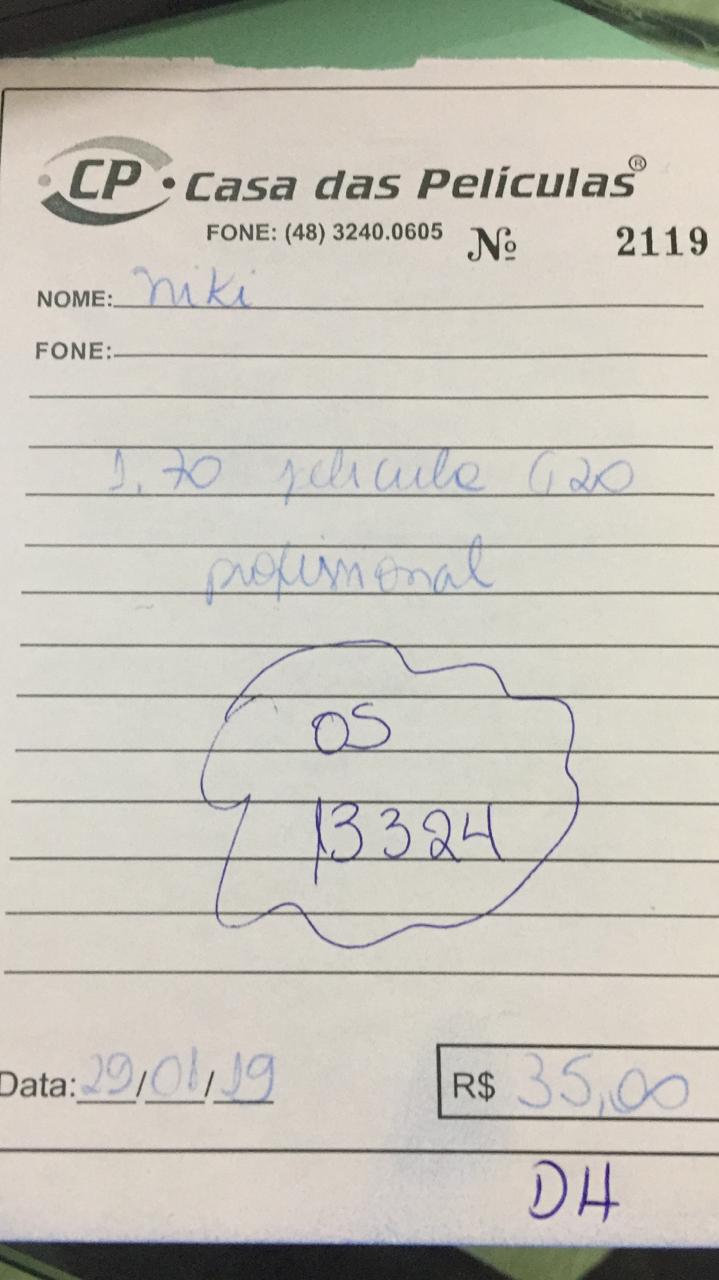 CP • Casa das Películas®
FONE: (48) 3240.0605 Nº 2119
NOME: Niki
FONE:
1,70 pelicula G20
profissional
OS
13324
Data: 29/01/19 R$ 35,00
DH